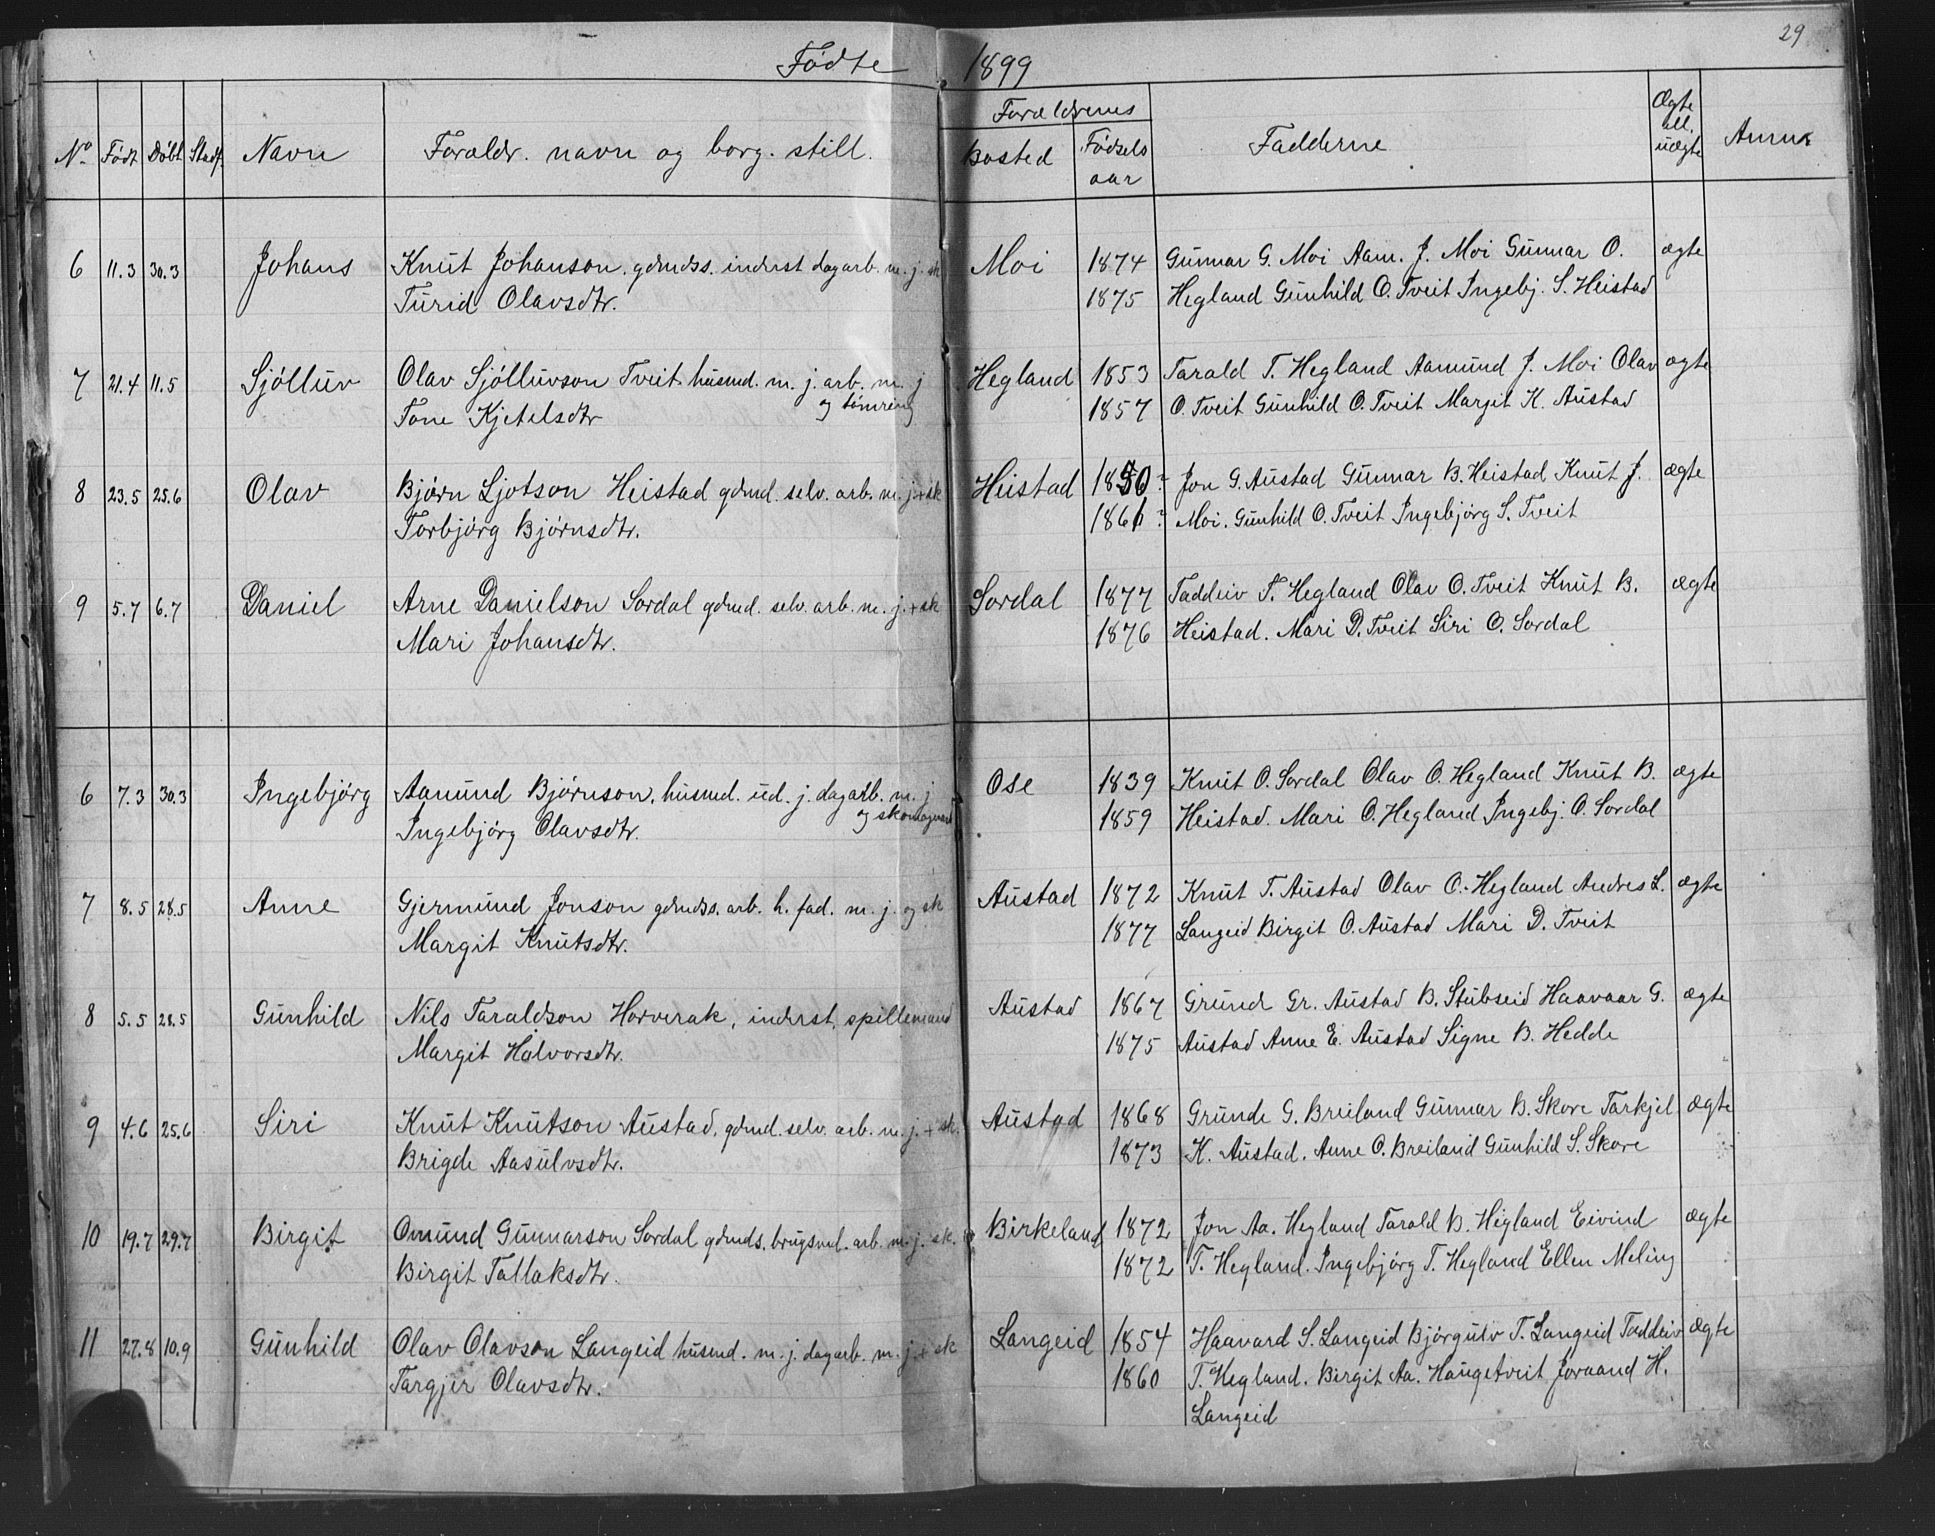 29
Födte 1899
No. Födt Döbt Stadf. Navn Foreldr. navn og borg. still. Foreldrenes Bosted Födsels aar Fadderne Ægte ell. uægte Anm.
6 11.3 30.3 Johans Knut Johanson, gdmdss. inderst dagarb. m. j. sk Moi 1874 Gunnar G. Moi Aam. J. Moi Gunnar O. ægte
Turid Olavsdtr. 1875 Hegland Gunhild O. Tveit Ingebj. S. Heistad
7 21.4 11.5 Sjölluv Olav Sjölluvson Tveit husmd. m. j. arb. m. j Hegland 1853 Tarald T. Hegland Aamund J. Moi Olav ægte
og tömring
Tone Kjetelsdtr 1857 O. Tveit Gunhild O. Tveit Margit K. Austad
8 23.5 25.6 Olav Björn Ljotson Heistad gdmd. selv. arb. m. j. + sk Heistad 1850? Jon G. Austad Gunnar B. Heistad Knut J. ægte
Torbjörg Björnsdtr. 1861? Moi. Gunhild O. Tveit Ingebjörg S. Tveit
9 5.7 6.7 Daniel Arne Danielson Sordal gdmd. selv. arb. m. j. + sk Sordal 1877 Taddeiv T. Hegland Olav O. Tveit Knut B. ægte
Mari Johansdtr. 1876 Heistad. Mari D. Tveit Siri O. Sordal
6 7.3 30.3 Ingebjörg Aanund Björnson, husmd. ud. j. dagarb. m. j Ose 1839 Knut O. Sordal Olav O. Hegland Knut B. ægte
og skomagerarb
Ingebjörg Olavsdtr. 1859 Heistad. Mari O. Hegland Ingebj. O. Sordal
7 8.5 28.5 Anne Gjermund Jonson gdmdss. arb. h. fad. m. j. og sk Austad 1872 Knut T. Austad Olav O. Hegland Andres L. ægte
Margit Knutsdtr. 1877 Langeid Birgit O. Austad Mari D. Tveit
8 5.5 28.5 Gunhild Nils Taraldson Horverak, inderst, spillemand Austad 1867 Grund Gr. Austad B. Stubseid Haavaar G. ægte
Margit Halvorsdtr. 1875 Austad Anne E. Austad Signe B. Hedde
9 4.6 25.6 Siri Knut Knutson Austad, gdmd. selv. arb. m. j. + sk. Austad 1868 Grunde G. Breiland Gunnar B. Skore Tarkjel ægte
Brigde Aasulvsdtr. 1873 K. Austad. Anne O. Breiland Gunhild S. Skore
10 19.7 29.7 Birgit Omund Gunnarson Sordal gdmds. brugsmd. arb. m. j. sk. Birkeland 1872 Jon Aa. Hegland Tarald B. Hegland Eivind ægte
Birgit Tallaksdtr. 1872 T. Hegland. Ingebjörg T. Hegland Ellen Meling
11 27.8 10.9 Gunhild Olav Olavson Langeid husmd. m. j. dagarb. m. j. + sk Langeid 1854 Haavard S. Langeid Björgulv T. Langeid Taddeiv ægte
Targjer Olavsdtr. 1860 T. Hegland. Birgit Aa. Haugetveit Joraand H.
Langeid